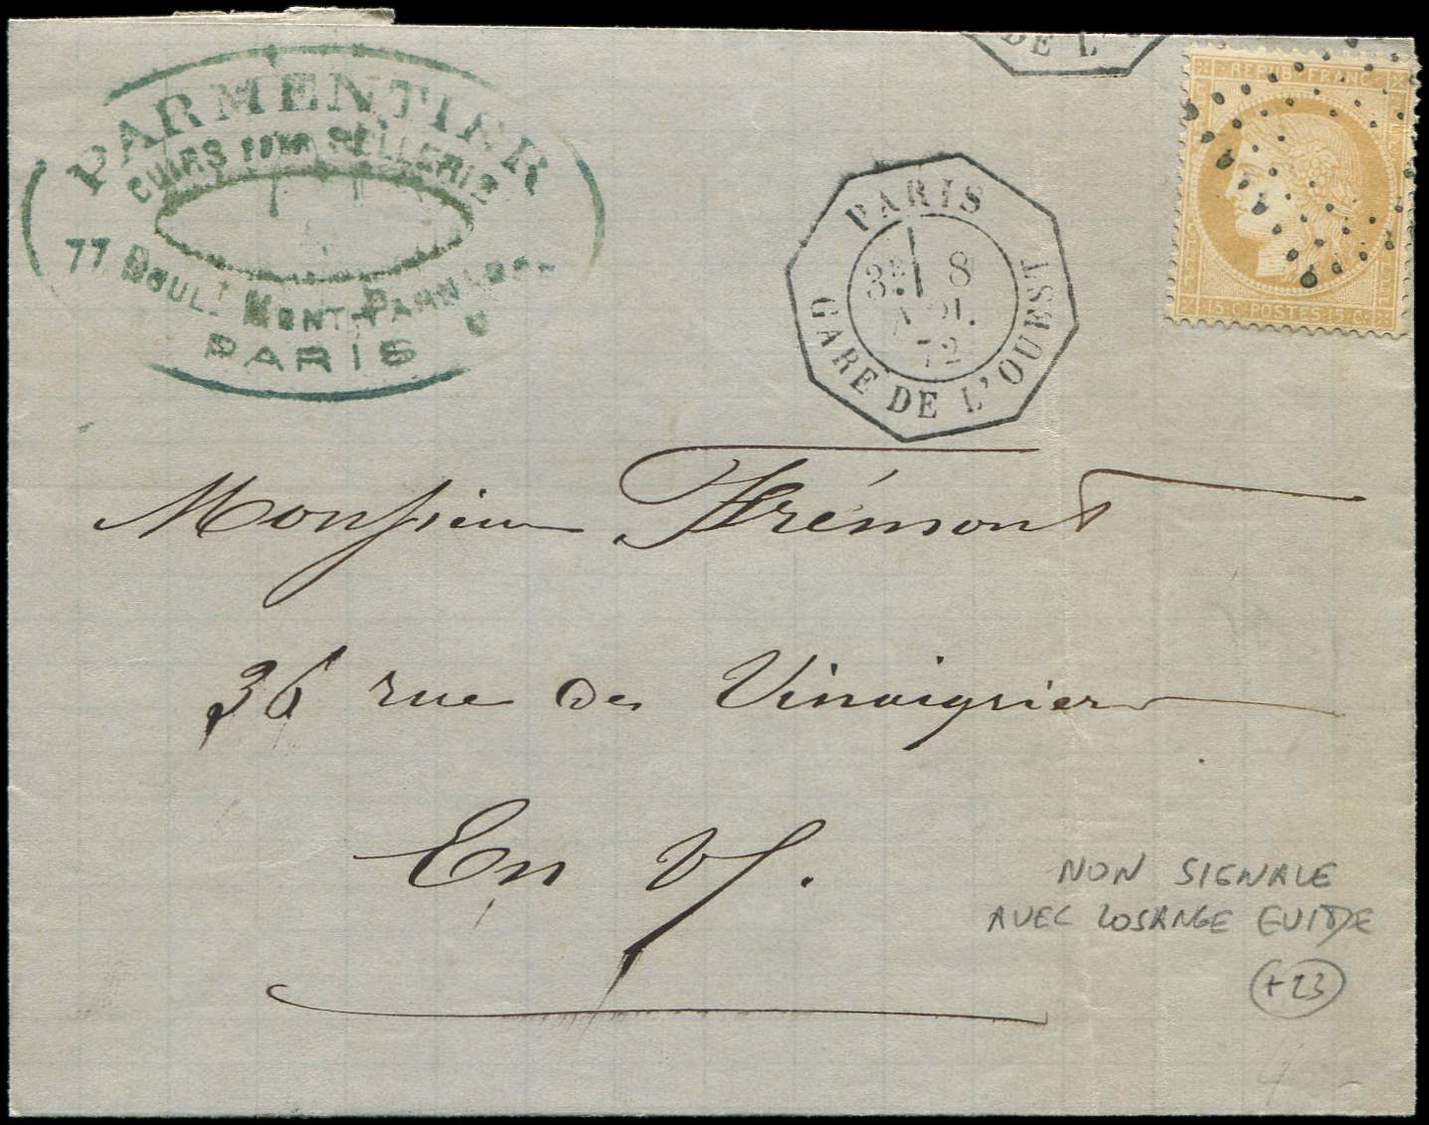 PARMENTIER
CUIRS POUR SELLERIE
77 BOULT MONT-PARNASSE
PARIS
DE L'
PARIS
3E 8
72
GARE DE L'OUEST
REPUB FRANC
15 C POSTES 15 C
Monsieur Frémont
36 rue des Vinaigriers
En V.
NON SIGNALE
AVEC LOSANGE EVIDE
+23